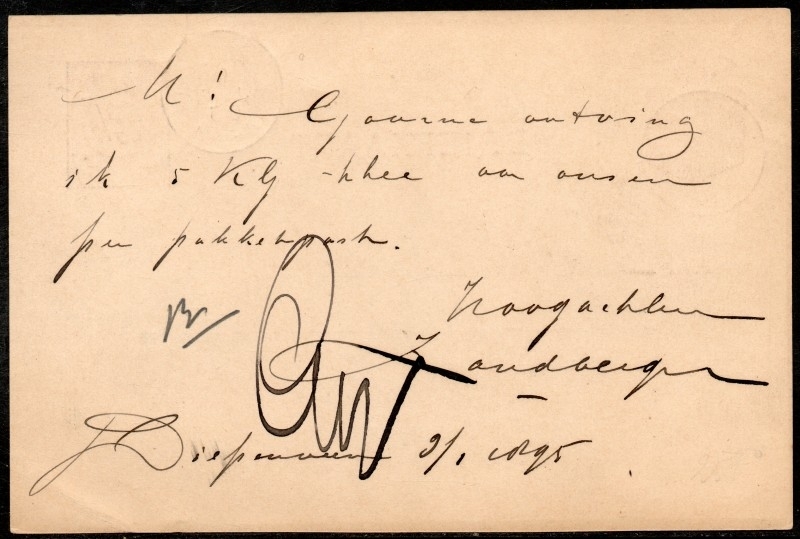 M!
Gaarne ontving
ik 5 KG thee van onsen
per pakketpost.
Hoogachten
Diepenveen 9/1 1895